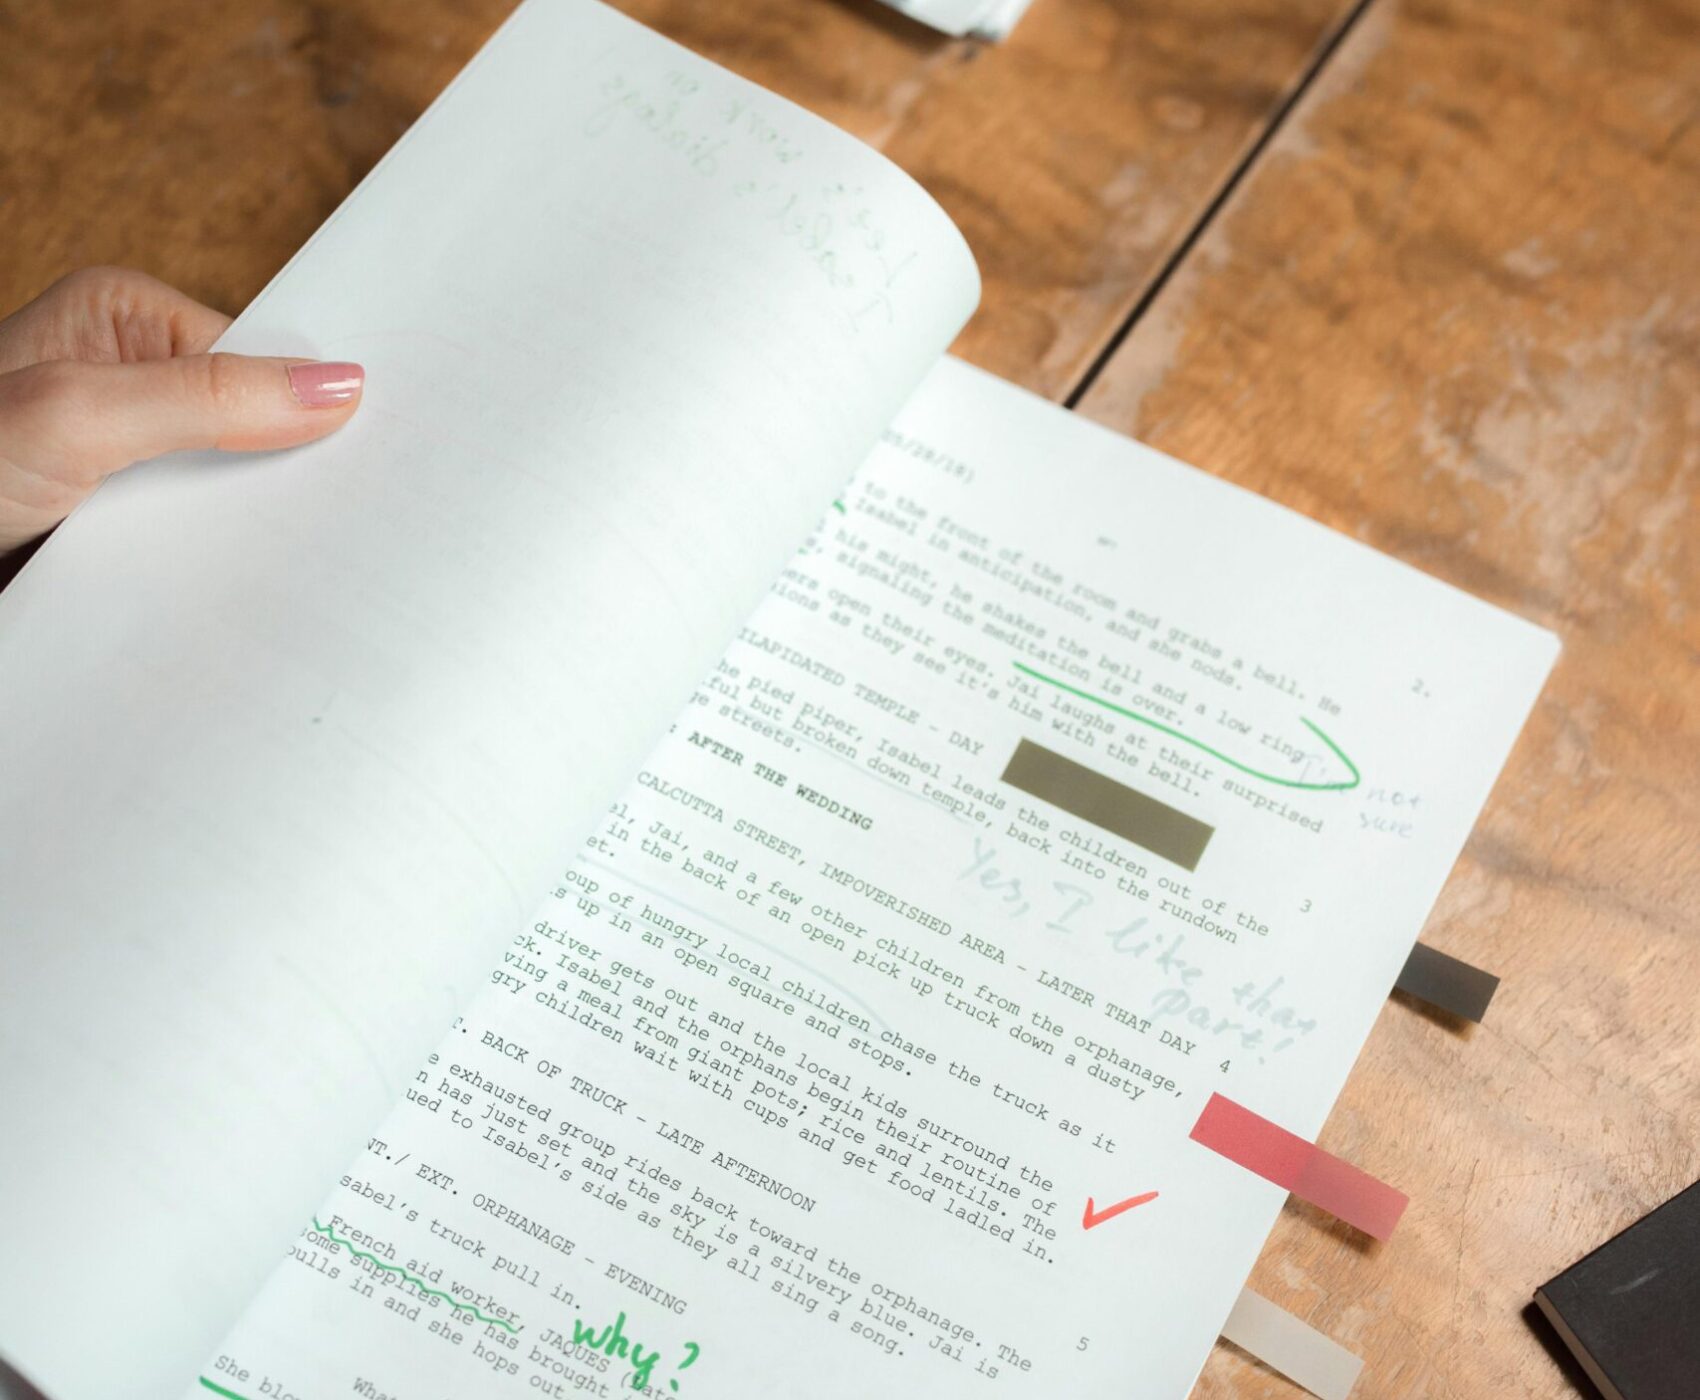 Let's work on
Isabel's dialogs
/28/18)
2.
to the front of the room and grabs a bell. He
Isabel in anticipation, and she nods.
his might, he shakes the bell and a low ring
signaling the meditation is over.
open their eyes. Jai laughs at their surprised
as they see it's him with the bell.
not
sure
ILAPIDATED TEMPLE - DAY
3
he pied piper, Isabel leads the children out of the
ful but broken down temple, back into the rundown
streets.
Yes, I like that
part!
: AFTER THE WEDDING
CALCUTTA STREET, IMPOVERISHED AREA - LATER THAT DAY
4
el, Jai, and a few other children from the orphanage,
in the back of an open pick up truck down a dusty
et.
oup of hungry local children chase the truck as it
s up in an open square and stops.
driver gets out and the local kids surround the
ck. Isabel and the orphans begin their routine of
ving a meal from giant pots; rice and lentils. The
gry children wait with cups and get food ladled in.
T. BACK OF TRUCK - LATE AFTERNOON
5
e exhausted group rides back toward the orphanage. The
n has just set and the sky is a silvery blue. Jai is
ued to Isabel's side as they all sing a song.
NT./ EXT. ORPHANAGE - EVENING
sabel's truck pull in.
why?
French aid worker, JAQUES (late
some supplies he has brought
pulls in and she hops out
She blo